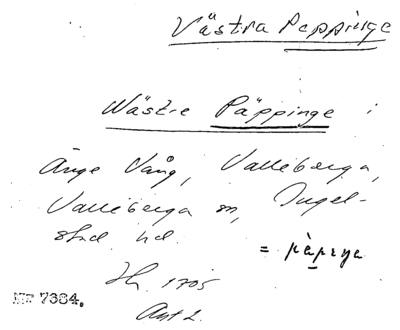 Västra Peppinge
Wästre Päppinge i
Änge Vång, Valleberga,
Valleberga sn, Ingel-
stad hd.
= pàpeŋa
Jh. 1705
MF 7384.
Akt 2.